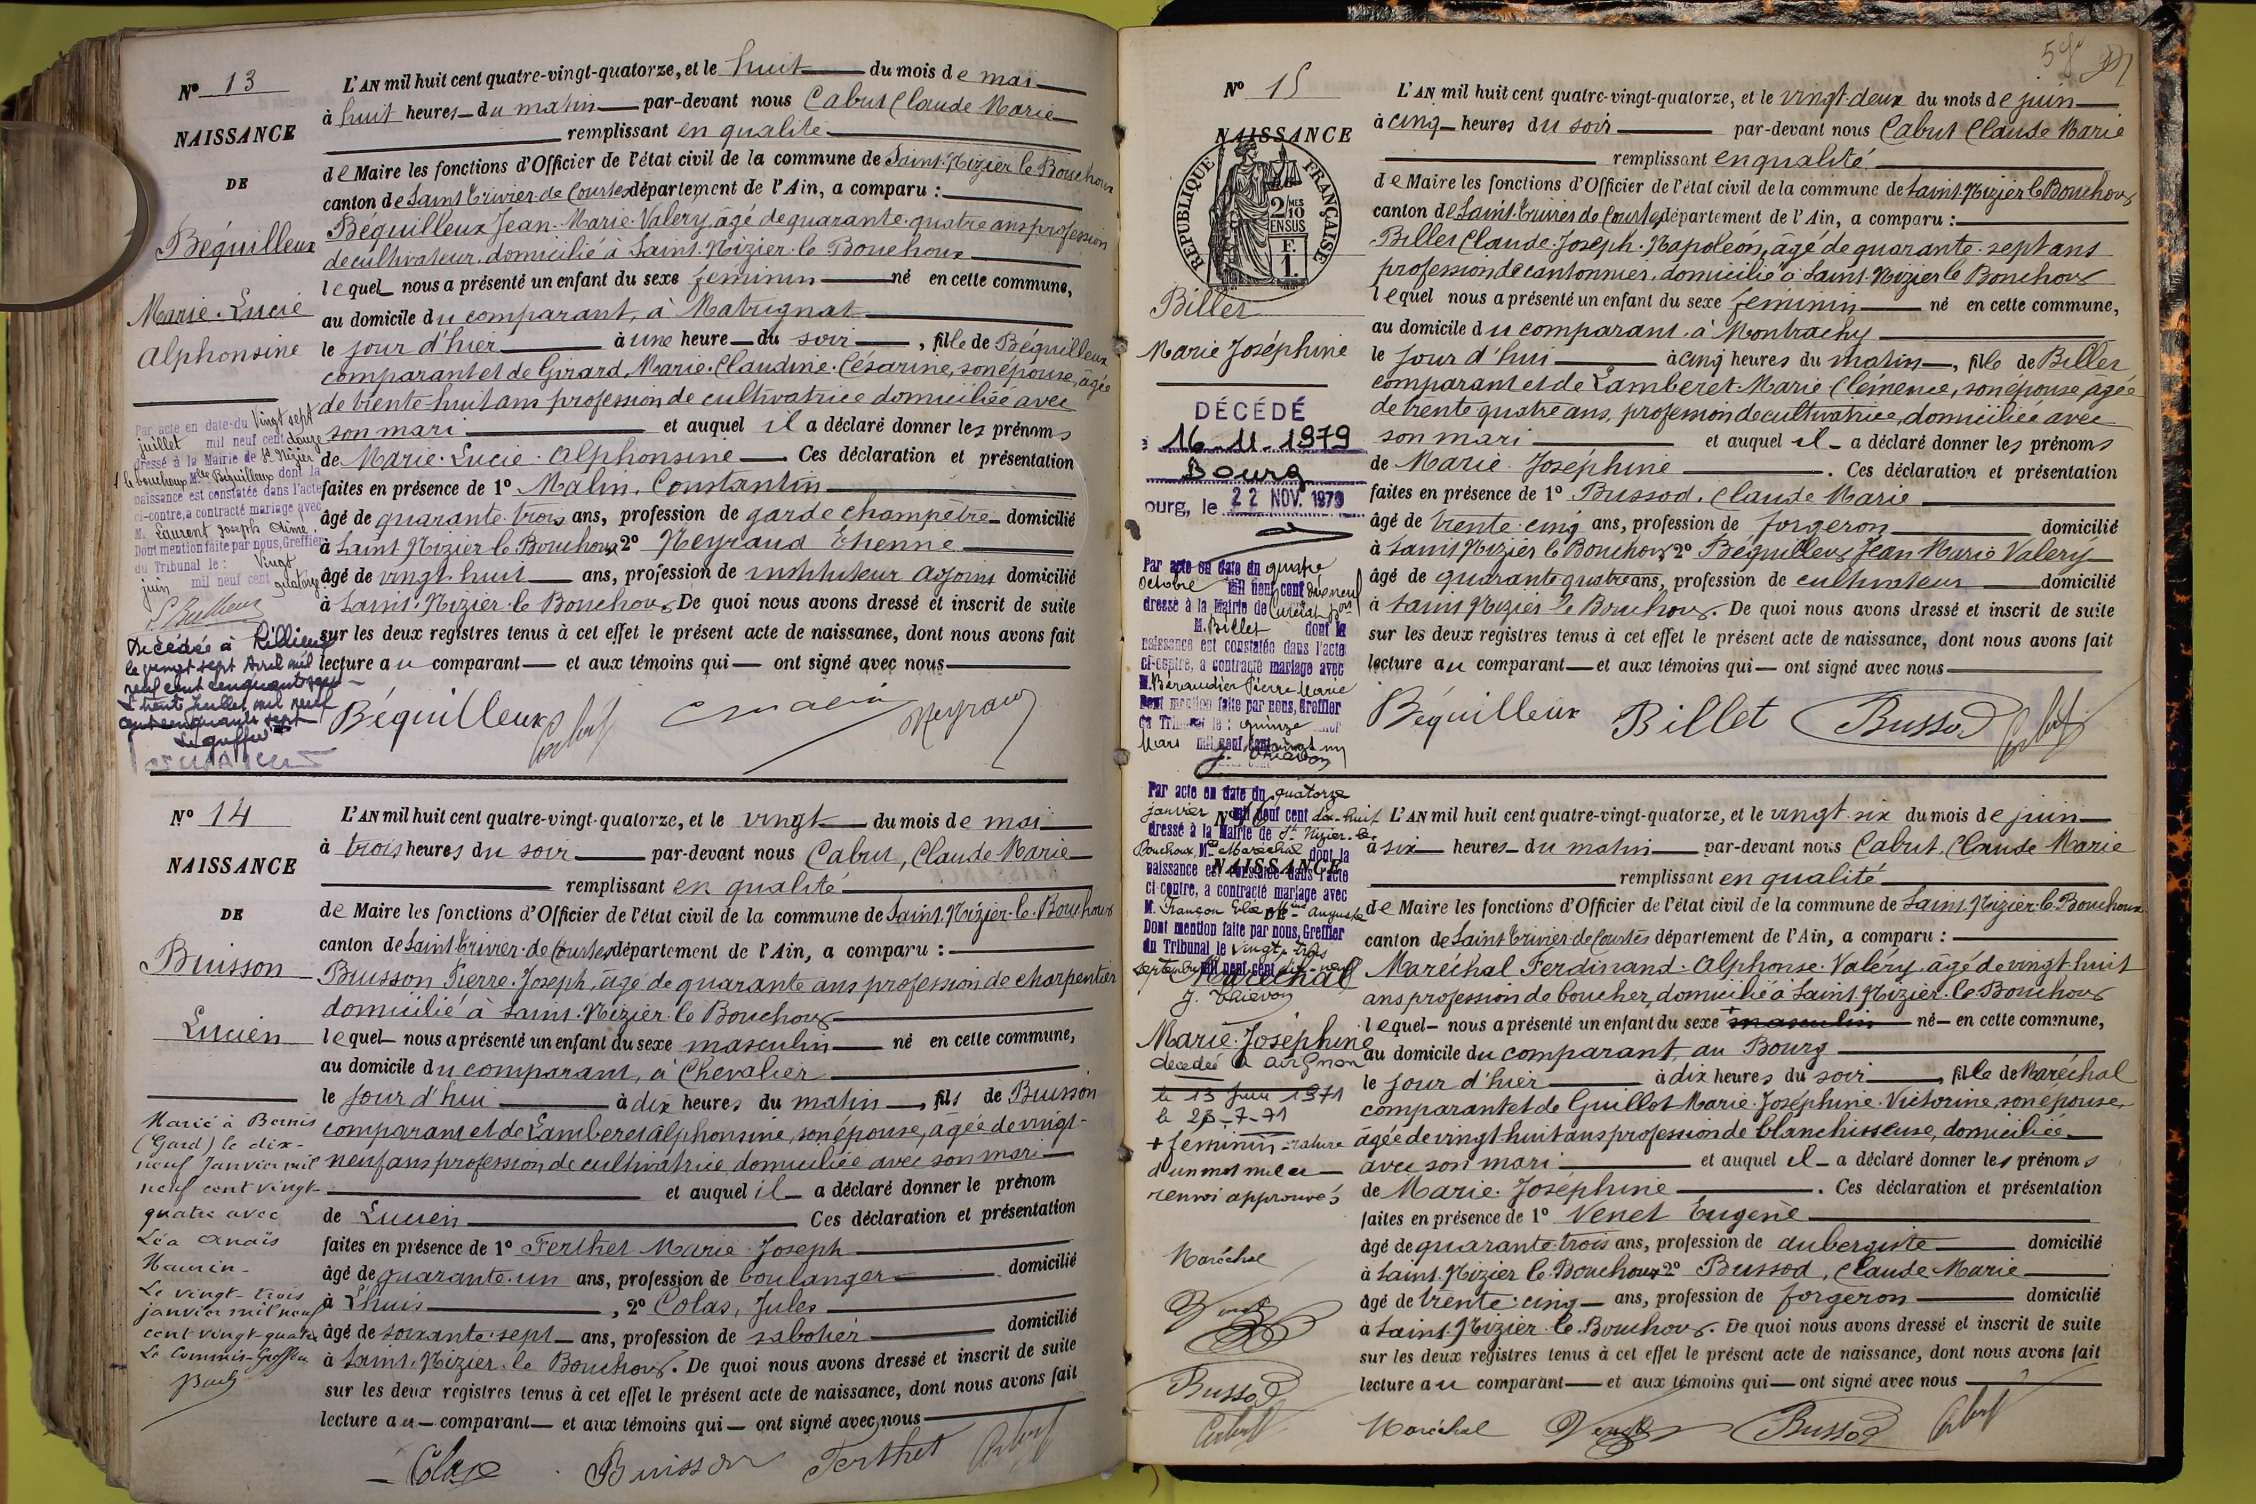 Nº 13
NAISSANCE
DE
Béquilleux
Marie-Lucie
Alphonsine
Par acte en date du vingt sept
juillet mil neuf cent douze
dressé à la Mairie de St Nizier
le bouchoux Mlle Béquilleux dont la
naissance est constatée dans l'acte
ci-contre, a contracté mariage avec
M. Laurent Joseph Aimé
Dont mention faite par nous, Greffier
du Tribunal le : Vingt
juin mil neuf cent quatorze
Décédée à Rillieux
le vingt sept Avril mil
neuf cent cinquante sept
L'AN mil huit cent quatre-vingt-quatorze, et le huit du mois de mai
à huit heures du matin par-devant nous Cabut Claude Marie
remplissant en qualité
de Maire les fonctions d'Officier de l'état civil de la commune de Saint-Nizier le Bouchoux
canton de Saint Trivier de Courtes département de l'Ain, a comparu :
Béquilleux Jean-Marie-Valery, âgé de quarante-quatre ans profession
de cultivateur, domicilié à Saint-Nizier-le Bouchoux
lequel nous a présenté un enfant du sexe feminin né en cette commune,
au domicile du comparant, à Matrignat
le jour d'hier à une heure du soir, fille de Béquilleux
comparant et de Girard, Marie-Claudine-Césarine, son épouse, âgée
de trente-huit ans profession de cultivatrice domiciliée avec
son mari et auquel il a déclaré donner les prénoms
de Marie-Lucie-Alphonsine Ces déclaration et présentation
faites en présence de 1º Malin, Constantin
âgé de quarante-trois ans, profession de garde champêtre domicilié
à Saint Nizier le Bouchoux 2º Neyraud Etienne
âgé de vingt-huit ans, profession de instituteur adjoint domicilié
à Saint-Nizier-le Bouchoux. De quoi nous avons dressé et inscrit de suite
sur les deux registres tenus à cet effet le présent acte de naissance, dont nous avons fait
lecture au comparant et aux témoins qui ont signé avec nous
Béquilleux Cabut Malin Neyraud
Nº 14
NAISSANCE
DE
Buisson
Lucien
Marié à Bernis
(Gard) le dix-
neuf Janvier mil
neuf cent vingt-
quatre avec
Léa Anaïs
Maurin
Le vingt-trois
janvier mil neuf
cent vingt-quatre
Le Commis-Greffier
L'AN mil huit cent quatre-vingt-quatorze, et le vingt du mois de mai
à trois heures du soir par-devant nous Cabut, Claude Marie
remplissant en qualité
de Maire les fonctions d'Officier de l'état civil de la commune de Saint-Nizier-le-Bouchoux
canton de Saint Trivier-de Courtes département de l'Ain, a comparu :
Buisson Pierre-Joseph, âgé de quarante ans profession de charpentier
domicilié à Saint-Nizier le Bouchoux
lequel nous a présenté un enfant du sexe masculin né en cette commune,
au domicile du comparant, à Chevalier
le jour d'hui à dix heures du matin, fils de Buisson
comparant et de Lamberet Alphonsine, son épouse, âgée de vingt-
neuf ans profession de cultivatrice domiciliée avec son mari
et auquel il a déclaré donner le prénom
de Lucien Ces déclaration et présentation
faites en présence de 1º Ferthet Marie Joseph
âgé de quarante-un ans, profession de boulanger domicilié
à Lhuis, 2º Colas, Jules
âgé de soixante-sept ans, profession de sabotier domicilié
à Saint-Nizier-le Bouchoux. De quoi nous avons dressé et inscrit de suite
sur les deux registres tenus à cet effet le présent acte de naissance, dont nous avons fait
lecture au comparant et aux témoins qui ont signé avec nous
Colas Buisson Ferthet Cabut
Nº 15
NAISSANCE
RÉPUBLIQUE FRANÇAISE
2 MES
10
EN SUS
F.
1.
Billet
Marie Joséphine
DÉCÉDÉ
16-11-1979
Bourg
ourg, le 22 NOV. 1979
Par acte en date du quatre
Octobre mil neuf cent dix neuf
dressé à la Mairie de
M. Billet dont la
naissance est constatée dans l'acte
ci-contre, a contracté mariage avec
M. Béraudier Pierre Marie
Dont mention faite par nous, Greffier
du Tribunal le : quinze
Mars mil neuf cent vingt un
J. Thiévon
L'AN mil huit cent quatre-vingt-quatorze, et le vingt deux du mois de juin
à cinq heures du soir par-devant nous Cabut Claude Marie
remplissant en qualité
de Maire les fonctions d'Officier de l'état civil de la commune de Saint-Nizier le Bouchoux
canton de Saint-Trivier de Courtes département de l'Ain, a comparu :
Billet Claude-Joseph-Napoléon, âgé de quarante-sept ans
profession de cantonnier, domicilié à Saint-Nizier le Bouchoux
lequel nous a présenté un enfant du sexe feminin né en cette commune,
au domicile du comparant à Montrachy
le jour d'hui à cinq heures du matin, fille de Billet
comparant et de Lamberet-Marie Clémence, son épouse, âgée
de trente quatre ans, profession de cultivatrice, domiciliée avec
son mari et auquel il a déclaré donner les prénoms
de Marie-Joséphine. Ces déclaration et présentation
faites en présence de 1º Bussod, Claude Marie
âgé de trente-cinq ans, profession de forgeron domicilié
à Saint Nizier le Bouchoux 2º Béquilleux Jean Marie Valery
âgé de quarante quatre ans, profession de cultivateur domicilié
à Saint Nizier le Bouchoux. De quoi nous avons dressé et inscrit de suite
sur les deux registres tenus à cet effet le présent acte de naissance, dont nous avons fait
lecture au comparant et aux témoins qui ont signé avec nous
Béquilleux Billet Bussod Cabut
Par acte en date du quatorze
janvier mil neuf cent dix-huit
dressé à la Mairie de St Nizier-le-
Bouchoux Mlle Maréchal dont la
NAISSANCE
naissance est constatée dans l'acte
ci-contre, a contracté mariage avec
DE
Dont mention faite par nous, Greffier
du Tribunal le vingt-trois
septembre mil neuf cent dix-neuf
Maréchal
J. Thiévon
Marie-Joséphine
décédée à Avignon
le 13 Juin 1971
+ feminin-rature
d'un mot nul et
renvoi approuvés
Maréchal
Venet
Bussod
Cabut
L'AN mil huit cent quatre-vingt-quatorze, et le vingt-six du mois de juin
à six heures du matin par-devant nous Cabut, Claude Marie
remplissant en qualité
de Maire les fonctions d'Officier de l'état civil de la commune de Saint-Nizier-le-Bouchoux
canton de Saint Trivier-de Courtes département de l'Ain, a comparu :
Maréchal Ferdinand-Alphonse-Valéry, âgé de vingt-huit
ans profession de boucher, domicilié à Saint-Nizier-le-Bouchoux
lequel nous a présenté un enfant du sexe + masculin né en cette commune,
au domicile du comparant, au Bourg
le jour d'hier à dix heures du soir, fille de Maréchal
comparant et de Guillot Marie-Joséphine-Victorine, son épouse,
âgée de vingt-huit ans profession de blanchisseuse, domiciliée
avec son mari et auquel il a déclaré donner les prénoms
de Marie-Joséphine. Ces déclaration et présentation
faites en présence de 1º Venet Eugène
âgé de quarante-trois ans, profession de aubergiste domicilié
à Saint-Nizier le-Bouchoux 2º Bussod, Claude Marie
âgé de trente-cinq ans, profession de forgeron domicilié
à Saint-Nizier-le-Bouchoux. De quoi nous avons dressé et inscrit de suite
sur les deux registres tenus à cet effet le présent acte de naissance, dont nous avons fait
lecture au comparant et aux témoins qui ont signé avec nous
Maréchal Venet Bussod Cabut